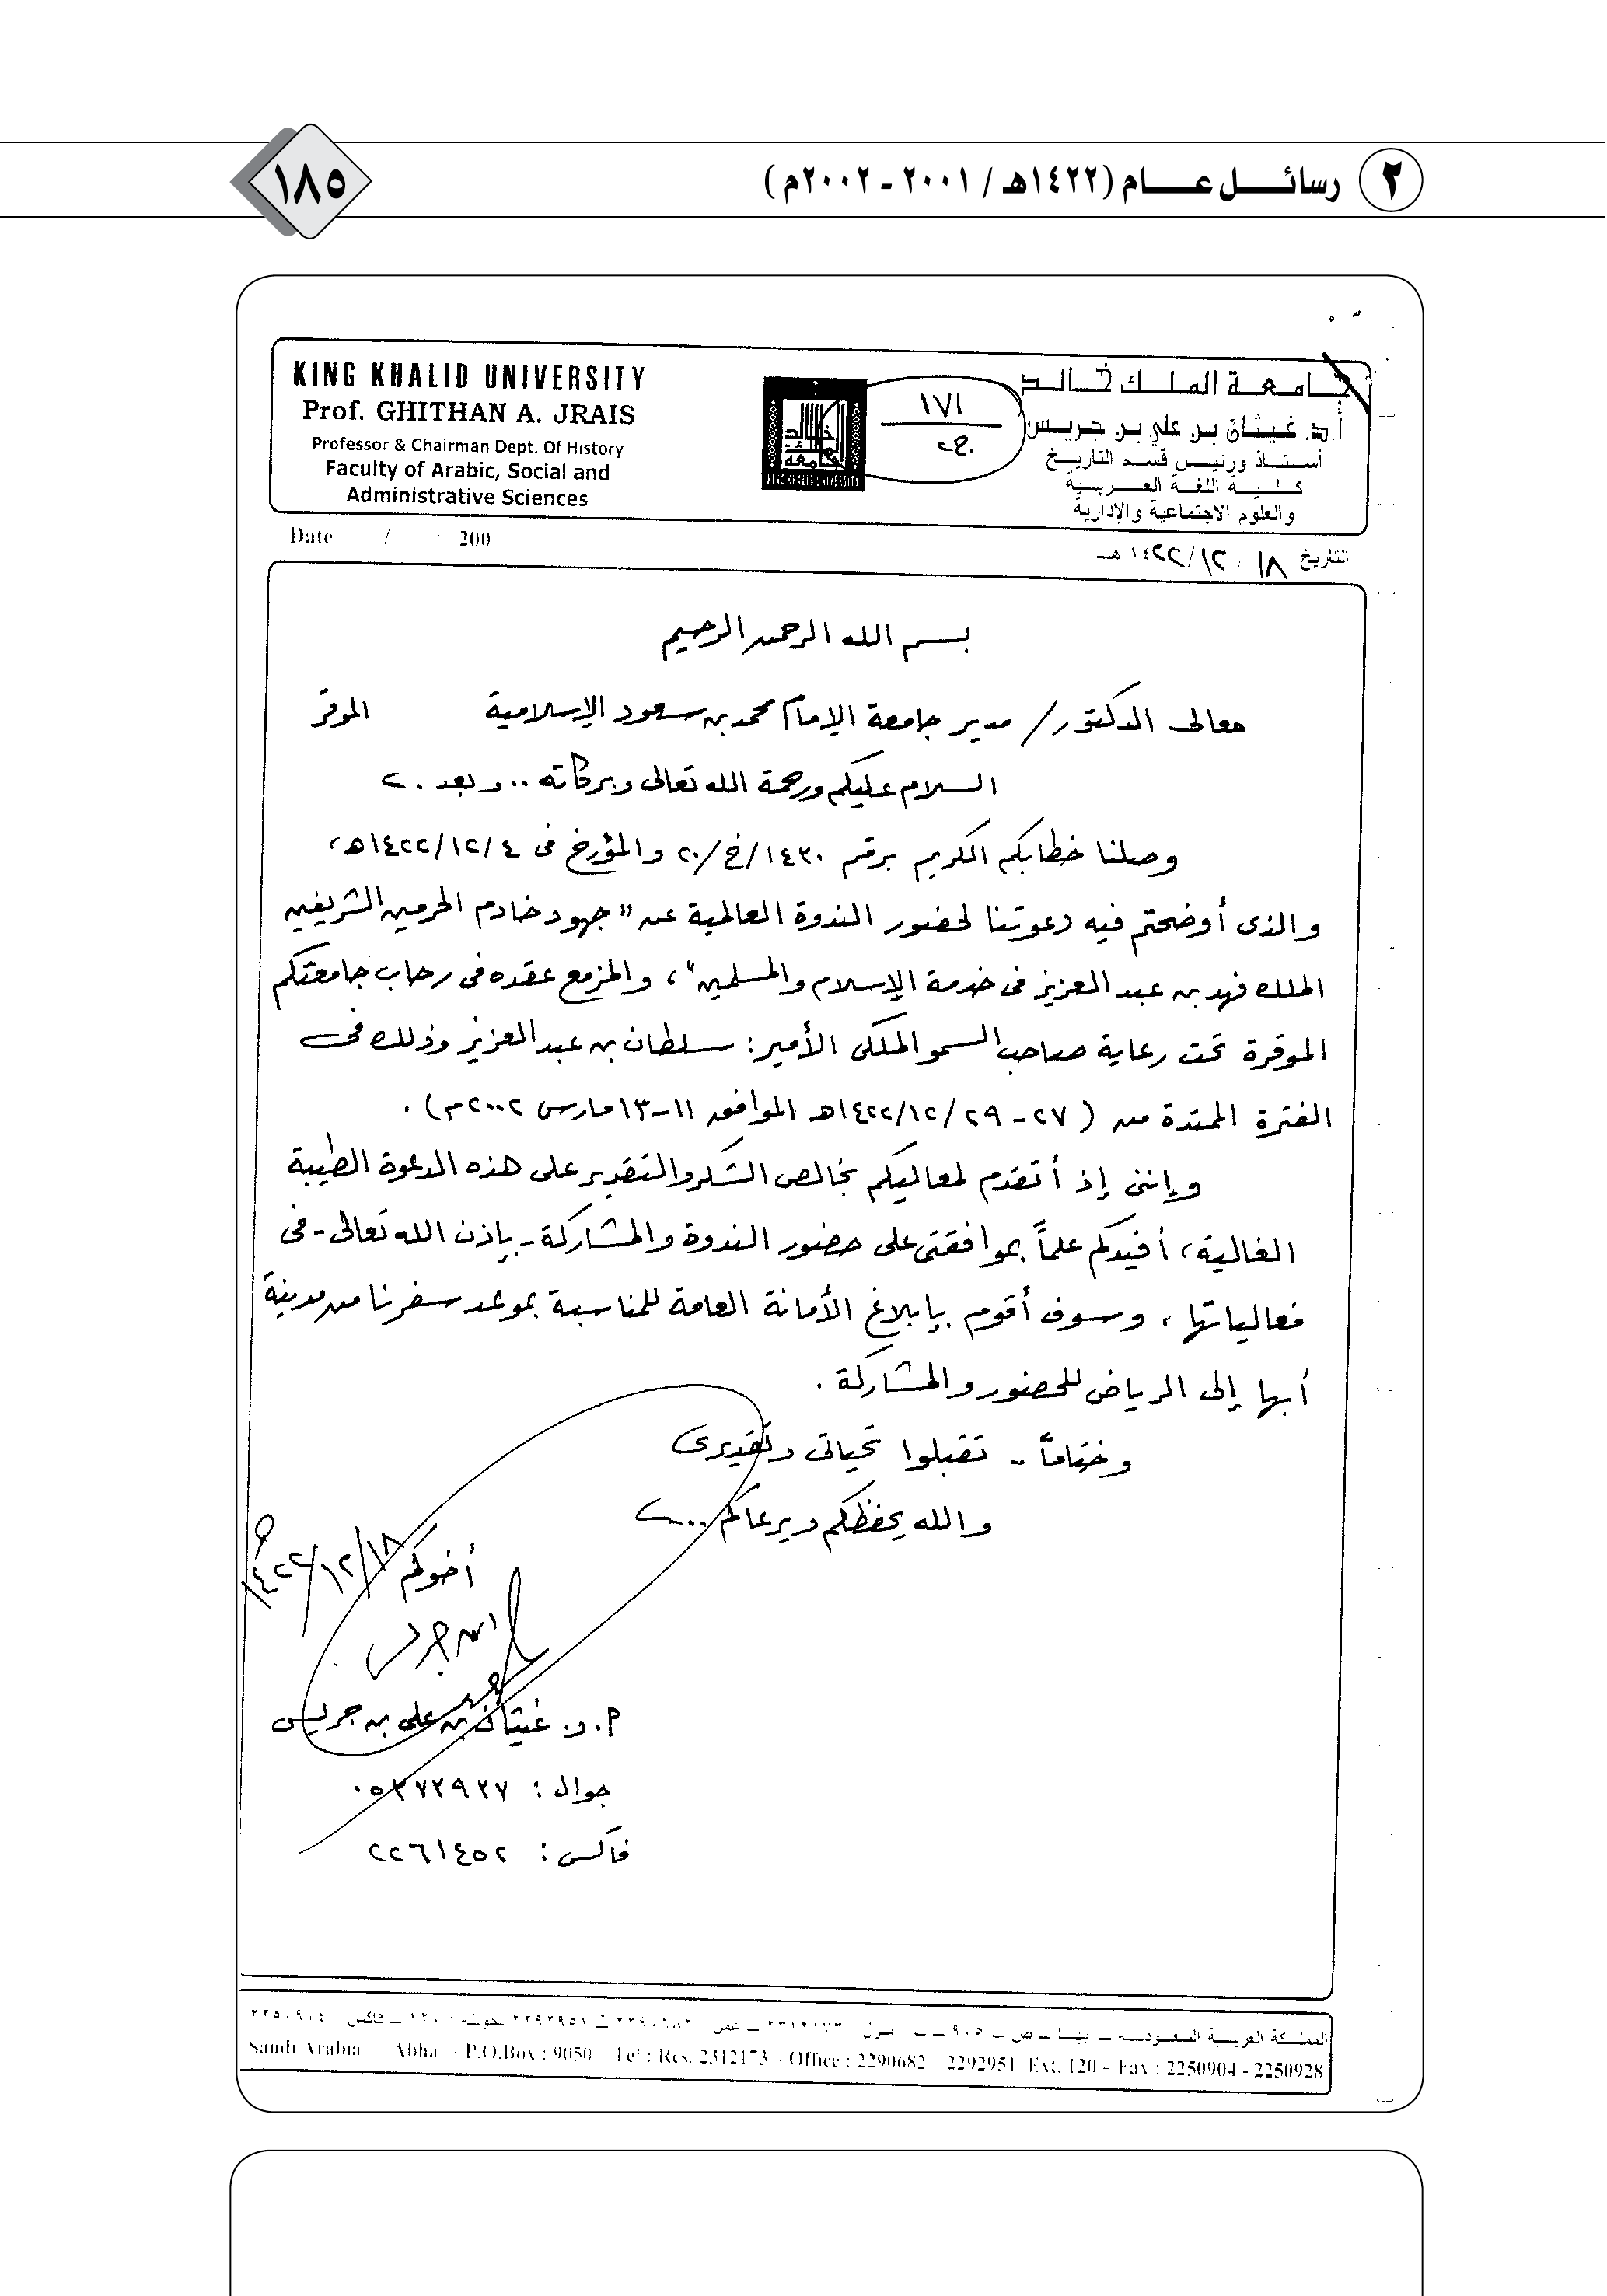 ٢ رسائل عام (١٤٢٢هـ / ٢٠٠١ - ٢٠٠٢م)
١٨٥
KING KHALID UNIVERSITY
Prof. GHITHAN A. JRAIS
Professor & Chairman Dept. Of History
Faculty of Arabic, Social and
Administrative Sciences
١٧١
جامعة الملك خالد
أ.د. غيثان بن علي بن جريس
أستاذ ورئيس قسم التاريخ
كلية اللغة العربية
والعلوم الاجتماعية والإدارية
Date / 200
التاريخ ١٨/١٢/١٤٢٢هـ
بسم الله الرحمن الرحيم
معالى الدكتور/ مدير جامعة الإمام محمد بن سعود الإسلامية الموقر
السلام عليكم ورحمة الله تعالى وبركاته .. وبعد ..
وصلنا خطابكم الكريم برقم ١٤٣٠/خ/٢٠ والمؤرخ فى ١٤٢٢/١٢/٤هـ،
والذى أوضحتم فيه دعوتنا لحضور الندوة العالمية عن "جهود خادم الحرمين الشريفين
الملك فهد بن عبد العزيز فى خدمة الإسلام والمسلمين"، والمزمع عقده فى رحاب جامعتكم
الموقرة تحت رعاية صاحب السمو الملكى الأمير: سلطان بن عبد العزيز وذلك فى
الفترة الممتدة من (٢٧-١٤٢٢/١٢/٢٩هـ الموافق ١١-١٣ مارس ٢٠٠٢م).
وإننى إذ أتقدم لمعاليكم بخالص الشكر والتقدير على هذه الدعوة الطيبة
الغالية، أفيدكم علماً بموافقتى على حضور الندوة والمشاركة - بإذن الله تعالى - فى
فعالياتها، وسوف أقوم بإبلاغ الأمانة العامة للمناسبة بموعد سفرنا من مدينة
أبها إلى الرياض للحضور والمشاركة.
وختاماً .. تقبلوا تحياتى وتقديرى
والله يحفظكم ويرعاكم ...
أخوكم
١٤٢٢/١٢/١٨هـ
ابن جريس
أ.د. غيثان بن على بن جريس
جوال: ٠٥٣٧٢٩٢٧
فاكس: ٢٢٦١٤٥٢
المملكة العربية السعودية - أبها - ص
Saudi Arabia Abha - P.O.Box : 9050 Tel : Res. 2312173 - Office : 2290682 2292951 Ext. 120 - Fax : 2250904 - 2250928